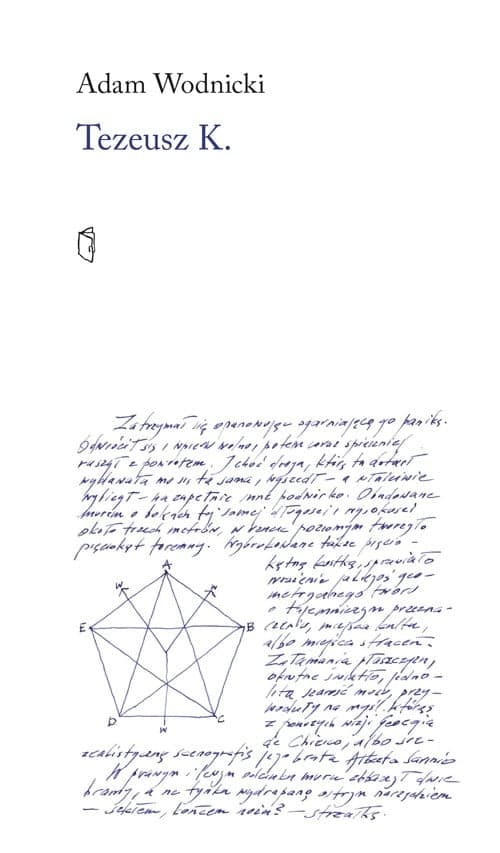 Adam Wodnicki
Tezeusz K.
Zatrzymał się opanowując ogarniającą go panikę.
Odwrócił się i wpierw wolno, potem coraz spieszniej
ruszył z powrotem. I choć droga, którą tu dotarł
wydawała mu się ta sama, wyszedł – a właściwie
wybiegł – na zupełnie inne podwórko. Obudowane
murem o bokach tej samej długości i wysokości
około trzech metrów, w rzucie poziomym tworzyło
pięciokąt foremny. Wybrukowane także pięcio-
kątną kostką, sprawiało
wrażenie jakiegoś geo-
metrycznego tworu
o tajemniczym przezna-
czeniu, miejsca kultu,
albo miejsca straceń.
Załamania płaszczyzn,
okrutne światło, jedno-
lita szarość muru, przy-
wodziły na myśl którąś
z późnych wizji Georgia
de Chirico, albo sur-
realistyczną scenografię jego brata Alberta Savinio
W prawym i lewym odcinku muru dwie
bramy, a na tynku wydrapaną ostrym narzędziem
– końcem noża? – strzałkę.
A
W
W
E
B
D
C
W